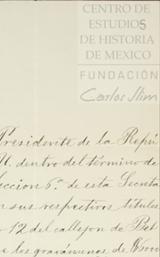 CENTRO DE
ESTUDIOS
DE HISTORIA
DE MEXICO
FUNDACIÓN
Carlos Slim
Presidente de la Repú
dentro del término de
cción 6ª de esta Secreta
sus respectivos títulos
12 del callejon de Bet
los gravámenes de